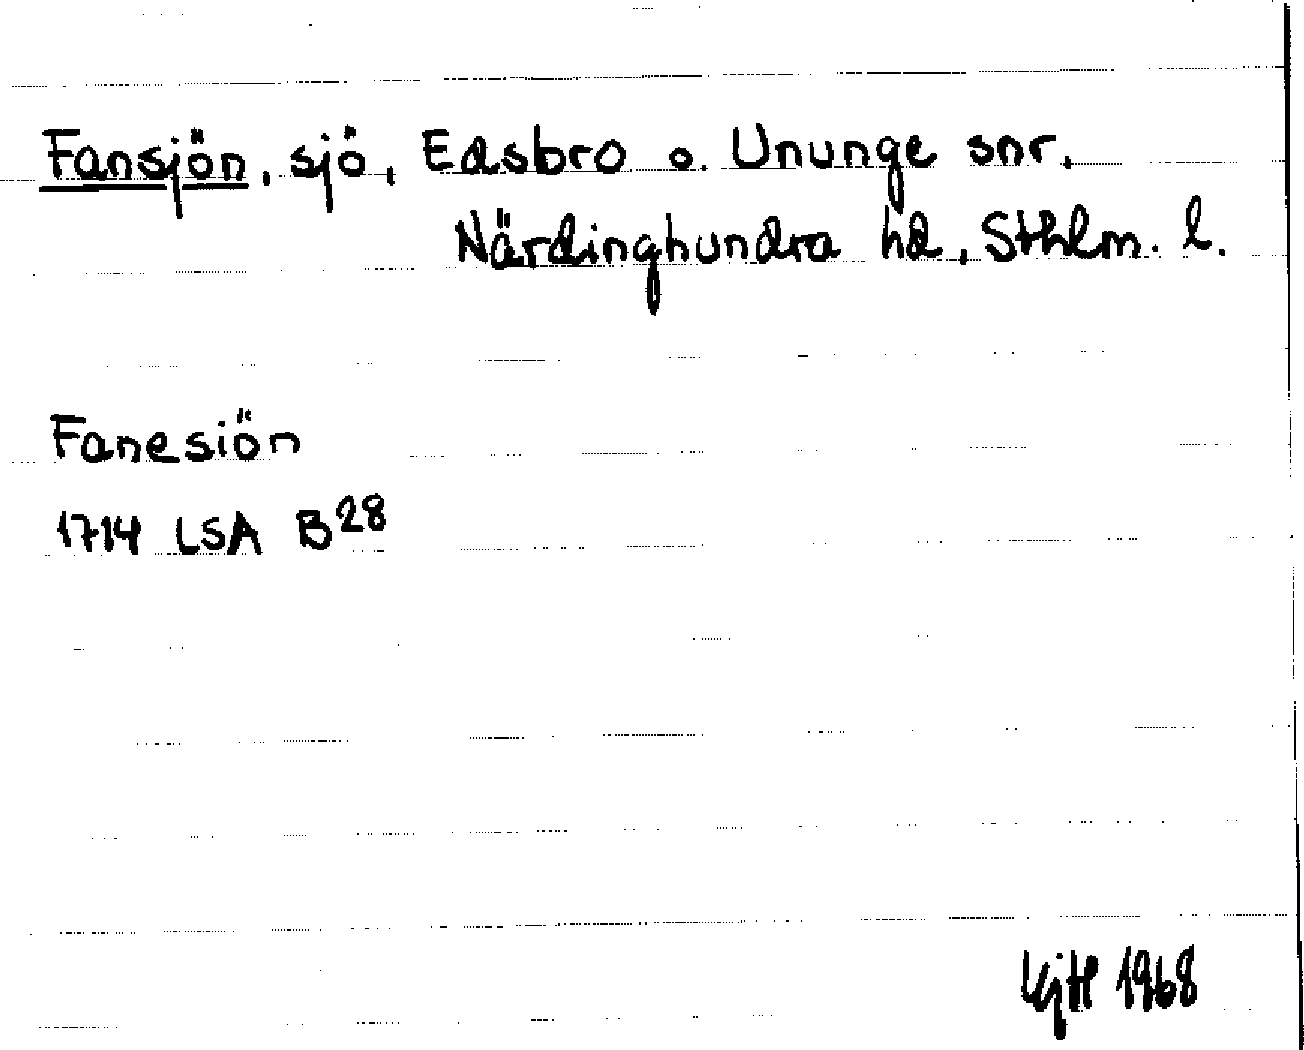 Fansjön, sjö, Edsbro o. Ununge snr.
Närdinghundra hd, Sthlm. l.
Fanesiön
1714 LSA B28
1968